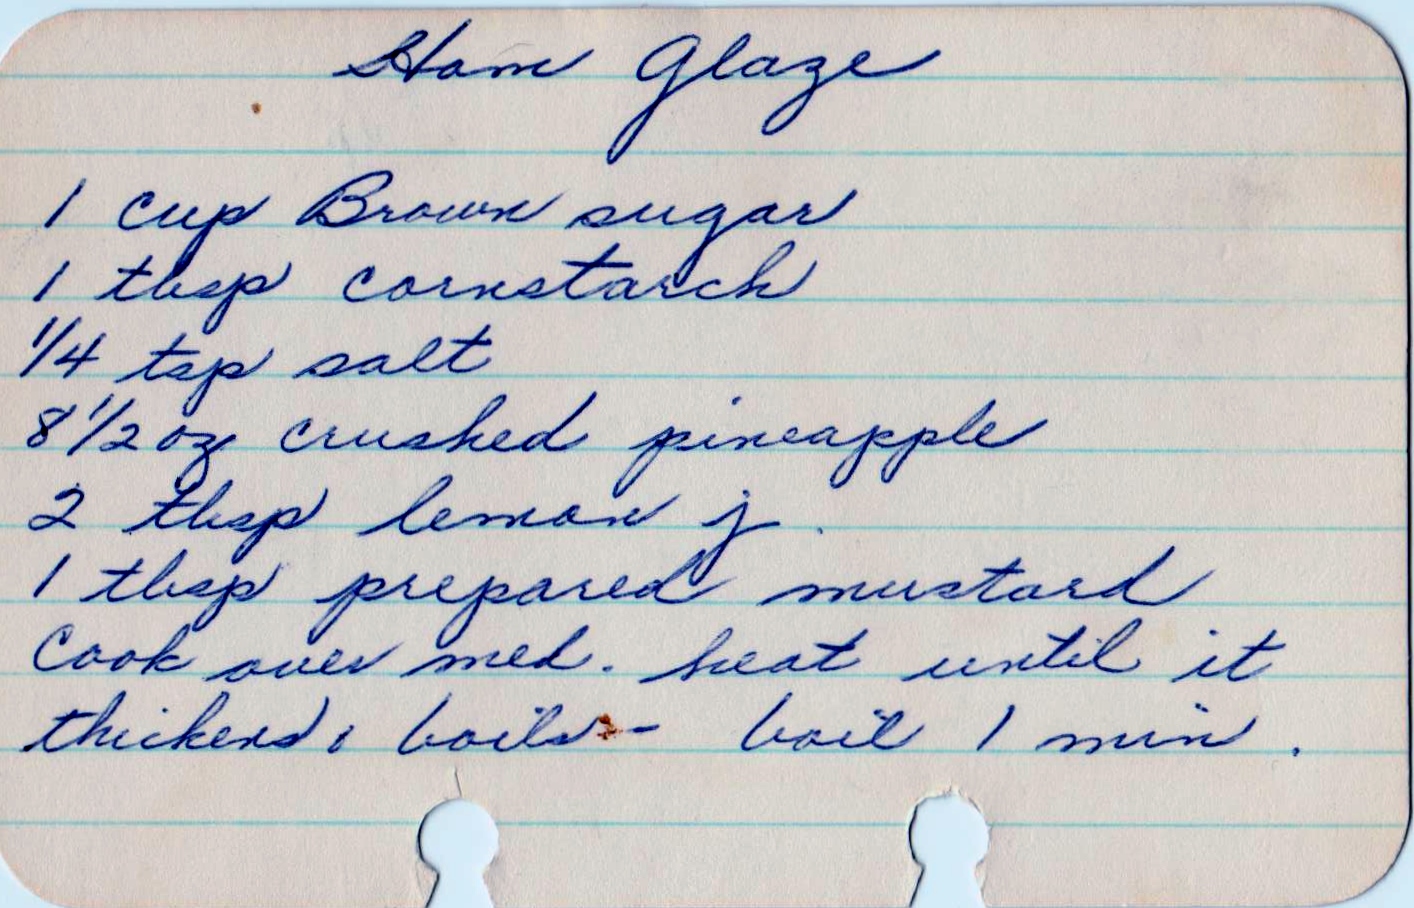 Ham Glaze
1 cup Brown sugar
1 tbsp cornstarch
1/4 tsp salt
8 1/2 oz crushed pineapple
2 tbsp lemon j.
1 tbsp prepared mustard
Cook over med. heat until it
thickens & boils - boil 1 min.